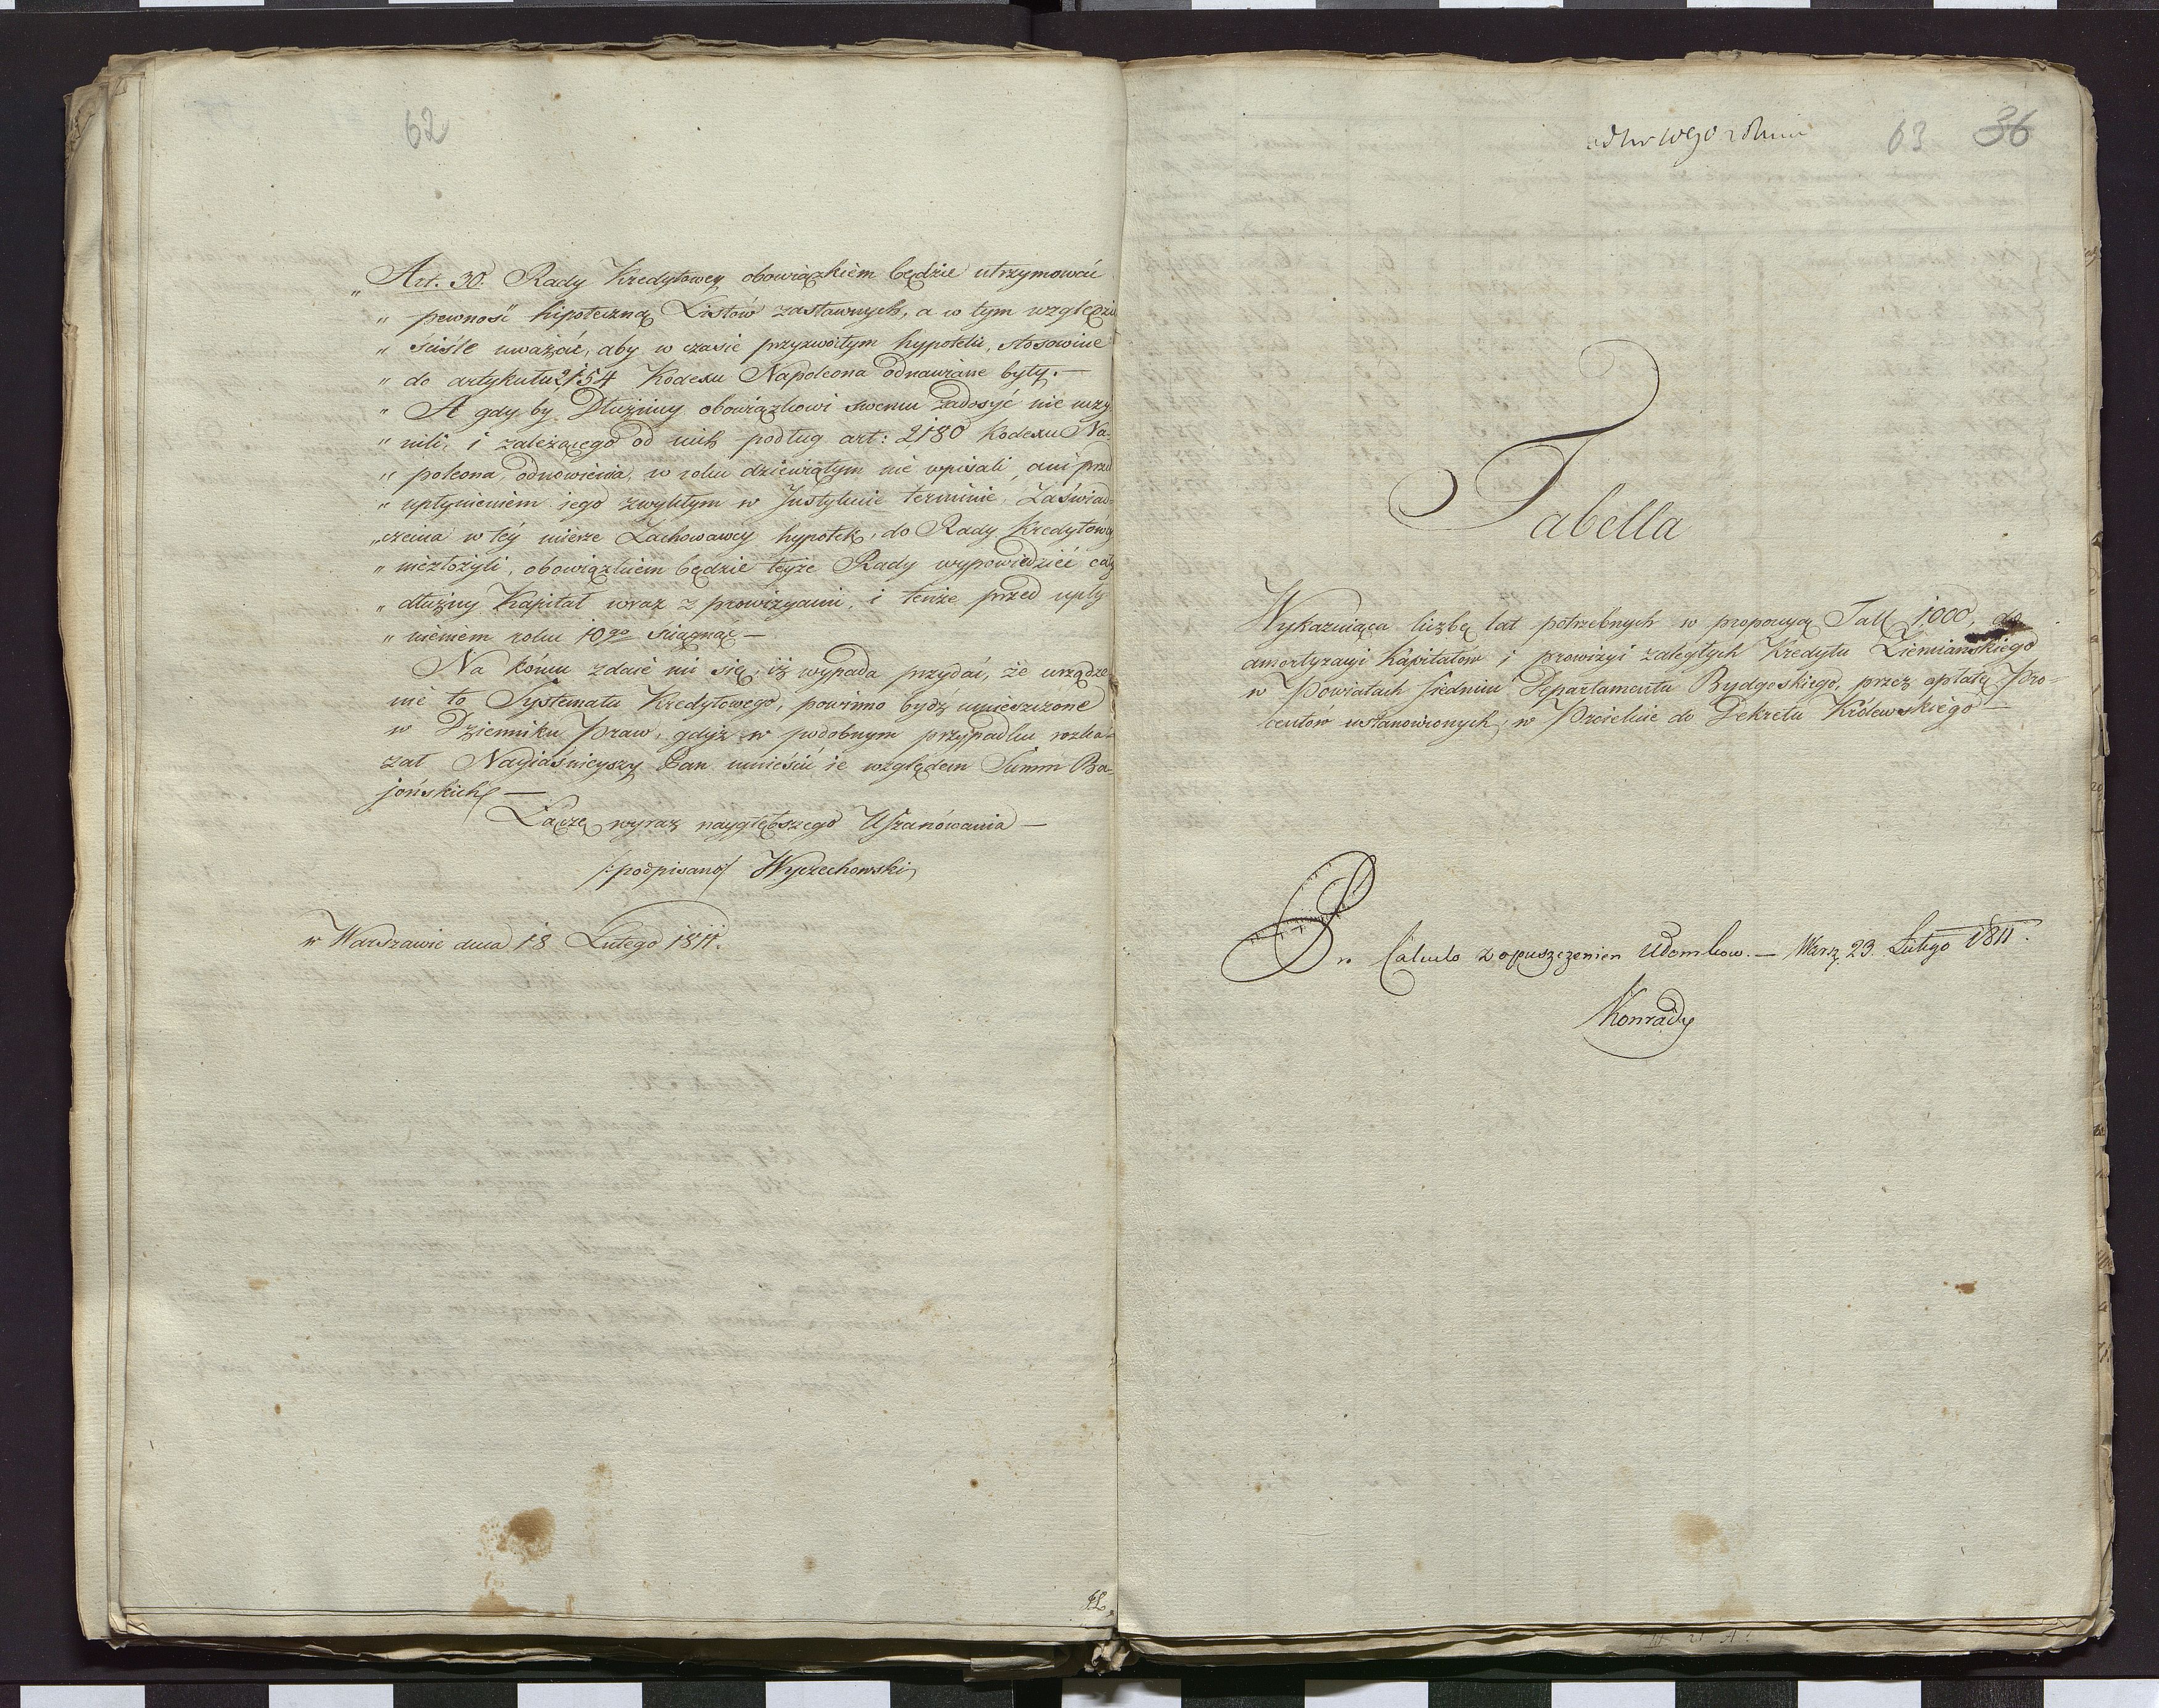 62
„ Art. 30. Rady Kredytowey obowiązkiem będzie utrzymować
„ pewność hipoteczną Listów zastawnych, a w tym względzie
„ ściśle uważać, aby w czasie przyzwoitym hypoteki, stosownie
„ do artykułu 2154 Kodexu Napoleona odnawiane były. —
„ A gdy by Dłużnicy obowiązkowi swemu zadosyć nie uczy-
„ nili, i zależącego od nich podług art: 2180 Kodexu Na-
„ poleona, odnowienia, w roku dziewiątym nie wpisali, ani przed
„ upłynieniem iego zwykłym w Instytucie terminie, Zaświad-
„ czenia w téy mierze Zachowawcy hypotek, do Rady Kredytowéy
„ niezłożyli, obowiązkiem będzie teyże Rady wypowiedzieć cały
„ dłużny Kapitał wraz z prowizyami, i tenże przed upły-
„ nieniem roku 10go ściągnąć —
Na końcu zdaie mi się, iż wypada przydać, że urządze-
nie to Systematu Kredytowego, powinno bydź umieszczone
w Dzienniku Praw, gdyż w podobnym przypadku rozka-
zał Nayiaśnieyszy Pan umieścić ie względem Summ Ba-
jońskich —
Łączę wyraz naygłębszego Uszanowania —
/:podpisano/ Wyczechowski
w Warszawie dnia 18 Lutego 1811.
63 36
Tabella
Wykazuiąca liczbę lat potrzebnych w proporcyą Tall 1000, do
amortyzacyi Kapitałów i prowizyi zaległych Kredytu Ziemiańskiego
w Powiatach siedmiu Departamentu Bydgoskiego, przez opłatę Pro-
centów ustanowionych, w Proiekcie do Dekretu Królewskiego —
in Calculo z opuszczeniem Ułomkow. — Warsz. 23. Lutego 1811.
Konrady